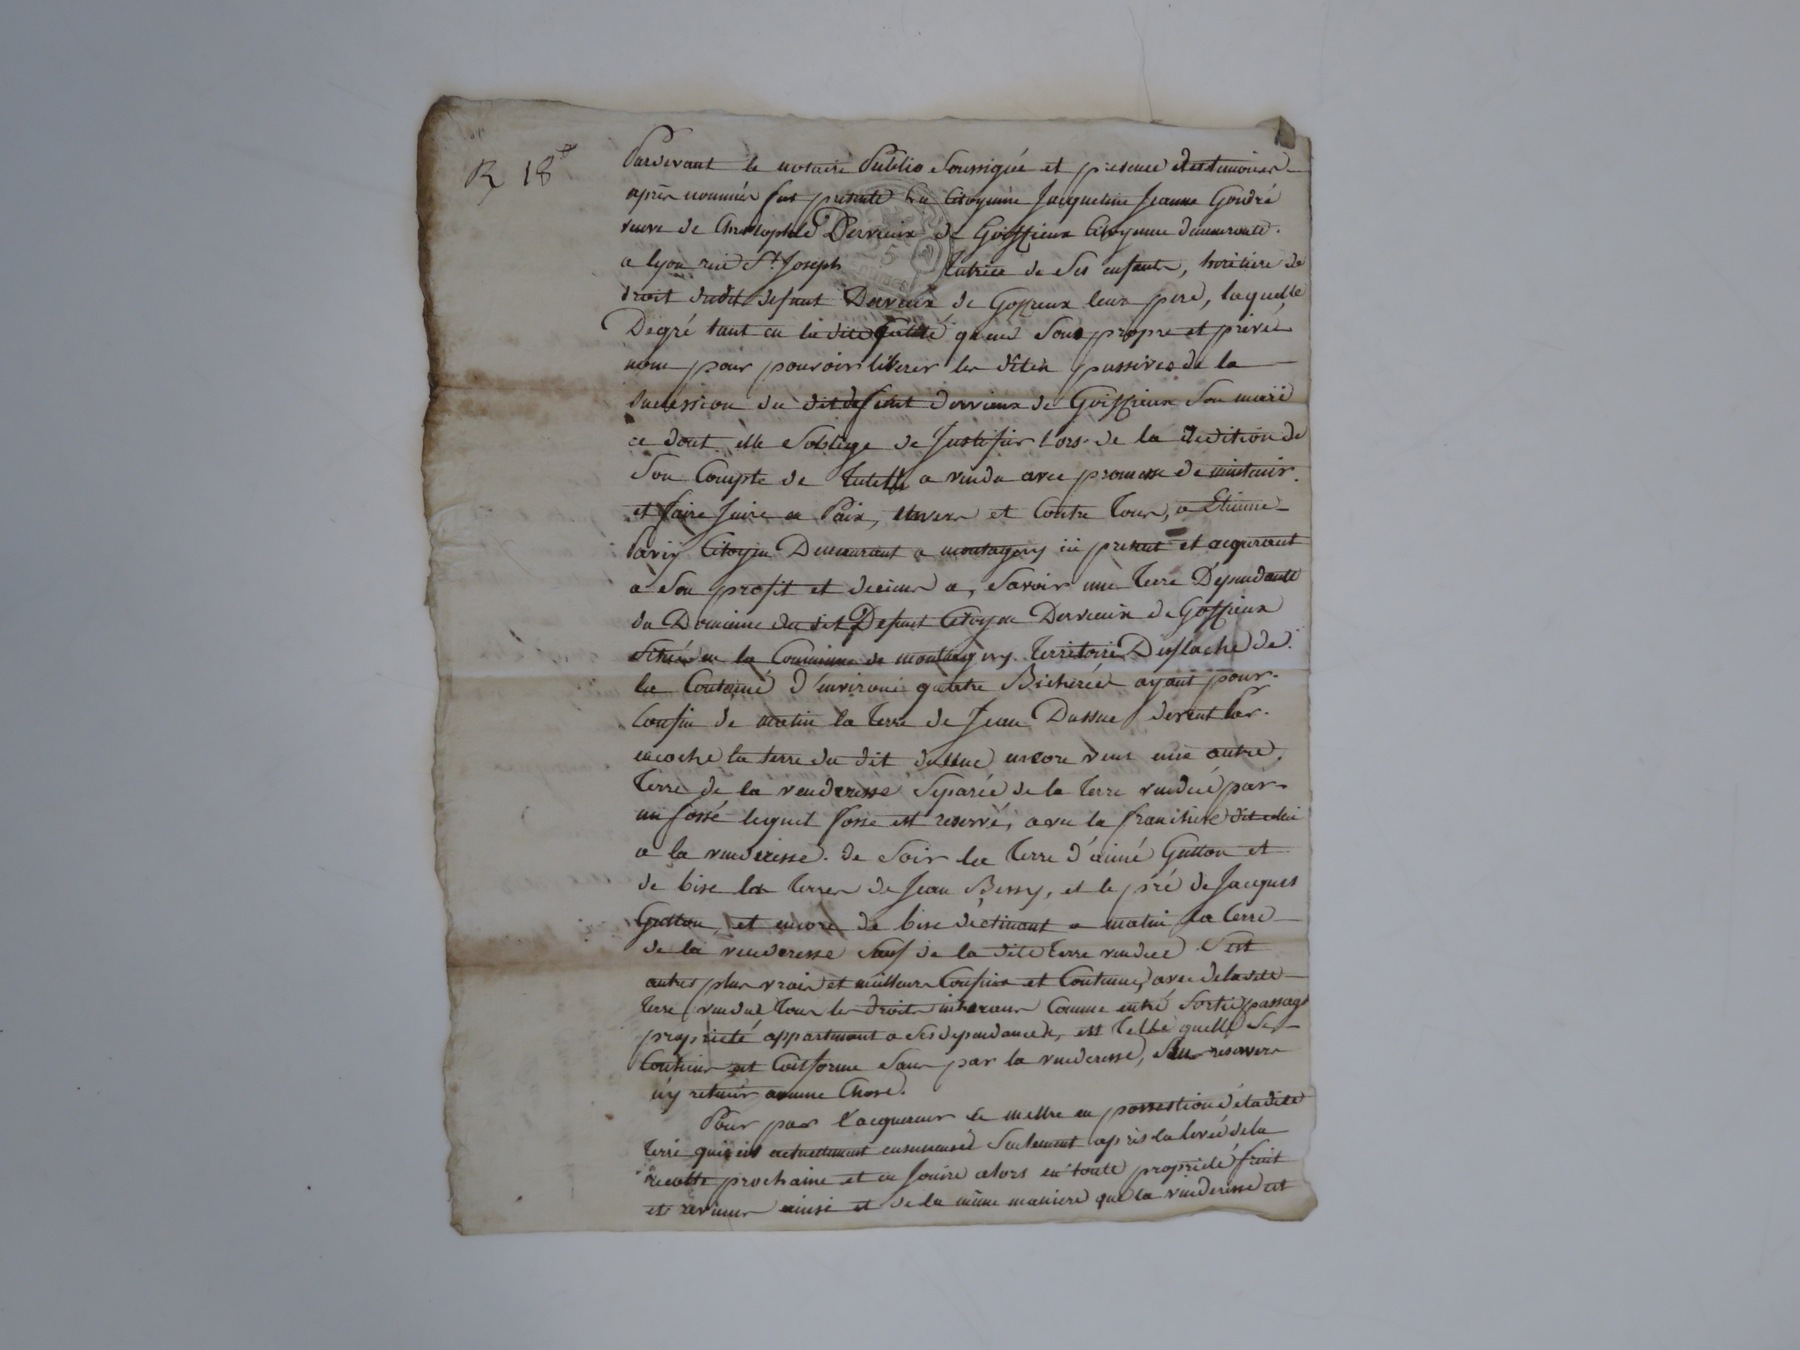 R 18
Pardevant le notaire Public Soussigné et presence des temoins
après nommés fut presente la Citoyenne Jacqueline Jeanne Gondré
veuve de Christophle Dervieux de Goiffieux Citoyenne demeurante
a lyon rue St. Joseph tutrice de Ses enfants, heritiere de
droit dudit defunt Dervieux de Goffieux leur pere, laquelle
Dégré tant en la dite qualité qu'en Son propre et privé
nom pour pouvoir liberer les dites passives de la
Succession du dit defunt dervieux de Goiffieux Son mari
ce dont elle Soblige de Justifier lors de la redition de
Son Compte de tutelle a vendu avec promesse de mintenir
et faire Juire en Paix, envers et Contre Tous, a Etienne
Citoyen Demeurant a montagny ici present et acquerant
a Son profit et des siens a, Savoir une Terre Dépendante
du Domaine du dit Defunt Citoyen Dervieux de Goffieux
Située en la Commune de montagny Territoire Duflache de
la Contenue d'environ quatre Bicherées ayant pour
Confin de matin la terre de Jean Dussuc devent
la terre du dit dussuc encore vent une autre
Terre de la venderesse Separée de la Terre vendue par
un fossé lequel fossé est reservé, avec la franchise
a la venderesse. de Soir la Terre d'aimé Gutton et
de bise les Terres de Jean Bessy, et le pré de Jacques
Gutton, et encore de bise déclinant a matin la terre
de la venderesse Sauf de la dite terre vendue Sest
autres plus vrais et meilleurs Confins et Contenue, avec de la dite
terre vendue Tous les droits Comme entré Sortie passage
proprieté appartenant a Ses dependances, est Telle quelle Se
Contient et Conforme Sans par la venderesse, S'en reserver
n'y retenir aucune Chose.
Pour par l'acquereur Se mettre en possession de la dite
terre qui est actuellement ensemencée Seulement après la levée de la
recolte prochaine et en Jouire alors en toute proprieté fruit
et revenus ainsi et de la même maniere que la venderesse est